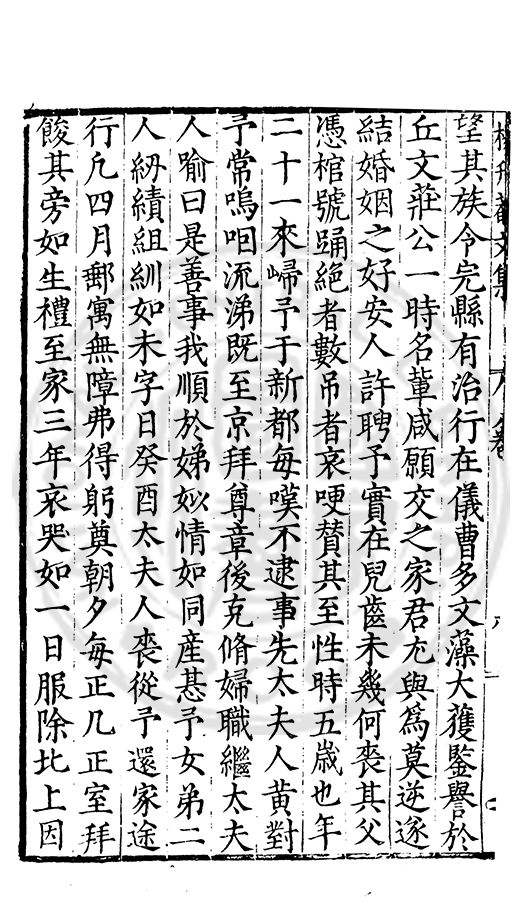 望其族令完縣有治行在儀曹多文藻大獲鑒譽於
丘文莊公一時名輩咸願交之家君尤與爲莫逆遂
結婚姻之好安人許聘予實在兒齒未幾何喪其父
憑棺號踊絶者數吊者哀哽賛其至性時五歲也年
二十一來歸予于新都每嘆不逮事先太夫人黃對
予常嗚咽流涕既至京拜尊章後克脩婦職繼太夫
人喻曰是善事我順於娣姒情如同産惎予女弟二
人紉績組紃如未字日癸酉太夫人喪從予還家途
行凢四月郵寓無障弗得躬奠朝夕每正几正室拜
餕其旁如生禮至家三年哀哭如一日服除北上因